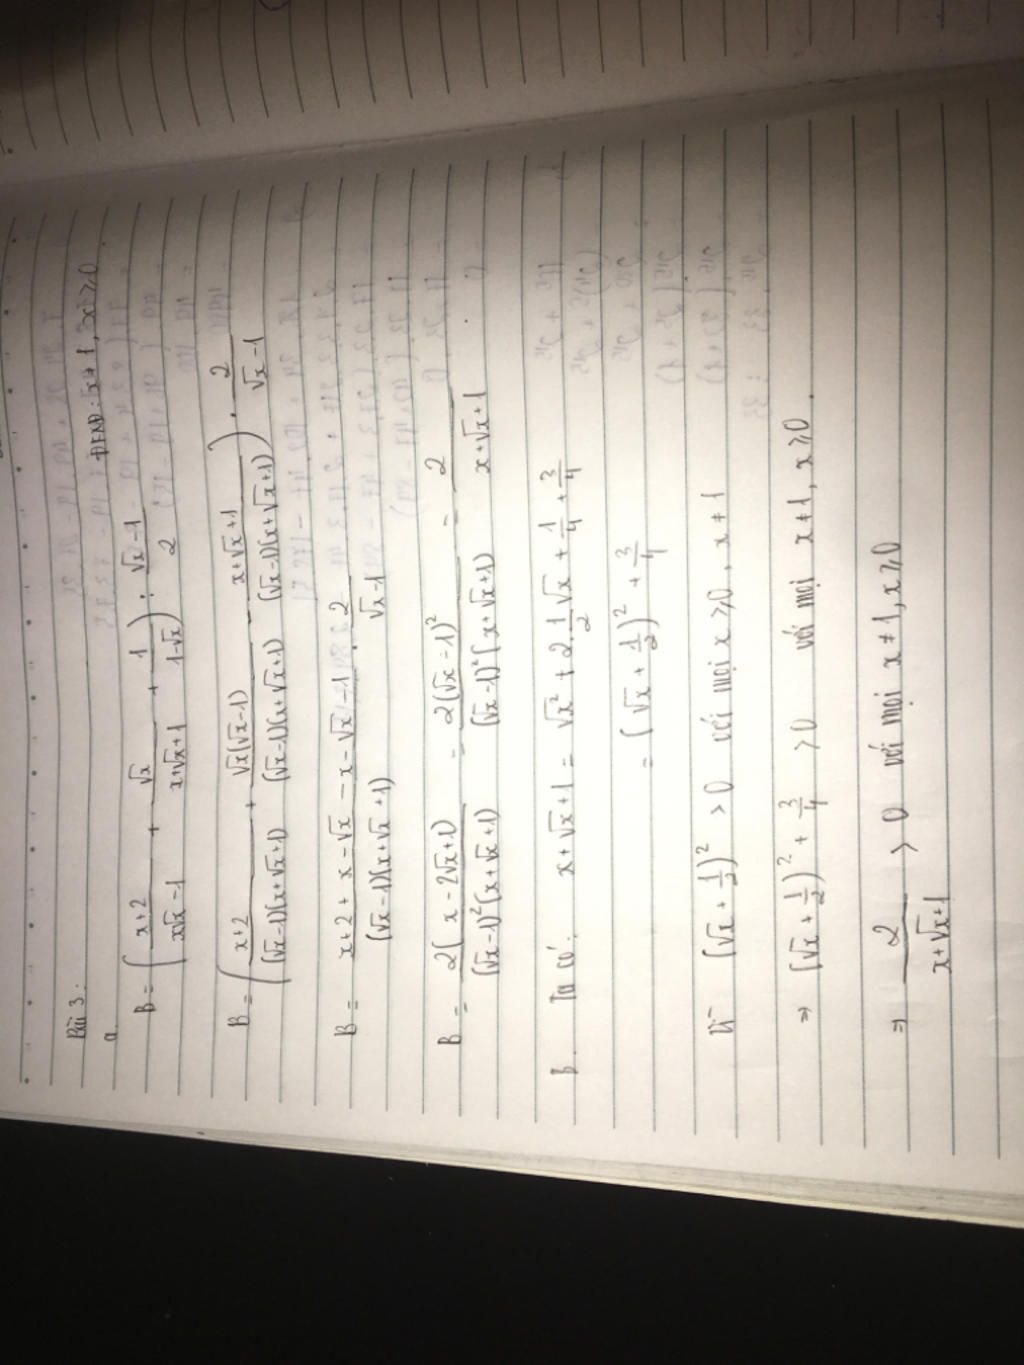 Bài 3.
a. ĐKXĐ: x ≠ 1, x ≥ 0
B = ( (x+2)/(x√x −1) + √x/(x+√x+1) + 1/(1−√x) ) : (√x −1)/2
B = ( (x+2)/((√x−1)(x+√x+1)) + √x(√x−1)/((√x−1)(x+√x+1)) − (x+√x+1)/((√x−1)(x+√x+1)) ) . 2/(√x−1)
B = (x+2 + x −√x − x −√x −1)/((√x −1)(x+√x +1)) . 2/(√x−1)
B = 2(x − 2√x+1)/((√x−1)²(x+√x+1)) = 2(√x −1)²/((√x−1)²(x+√x+1)) = 2/(x+√x+1)
b. Ta có: x+√x+1 = √x² + 2.1/2√x + 1/4 + 3/4
= (√x + 1/2)² + 3/4
Vì (√x + 1/2)² > 0 với mọi x ≥ 0, x ≠ 1
⇒ (√x + 1/2)² + 3/4 > 0 với mọi x ≠ 1, x ≥ 0.
⇒ 2/(x+√x+1) > 0 với mọi x ≠ 1, x ≥ 0